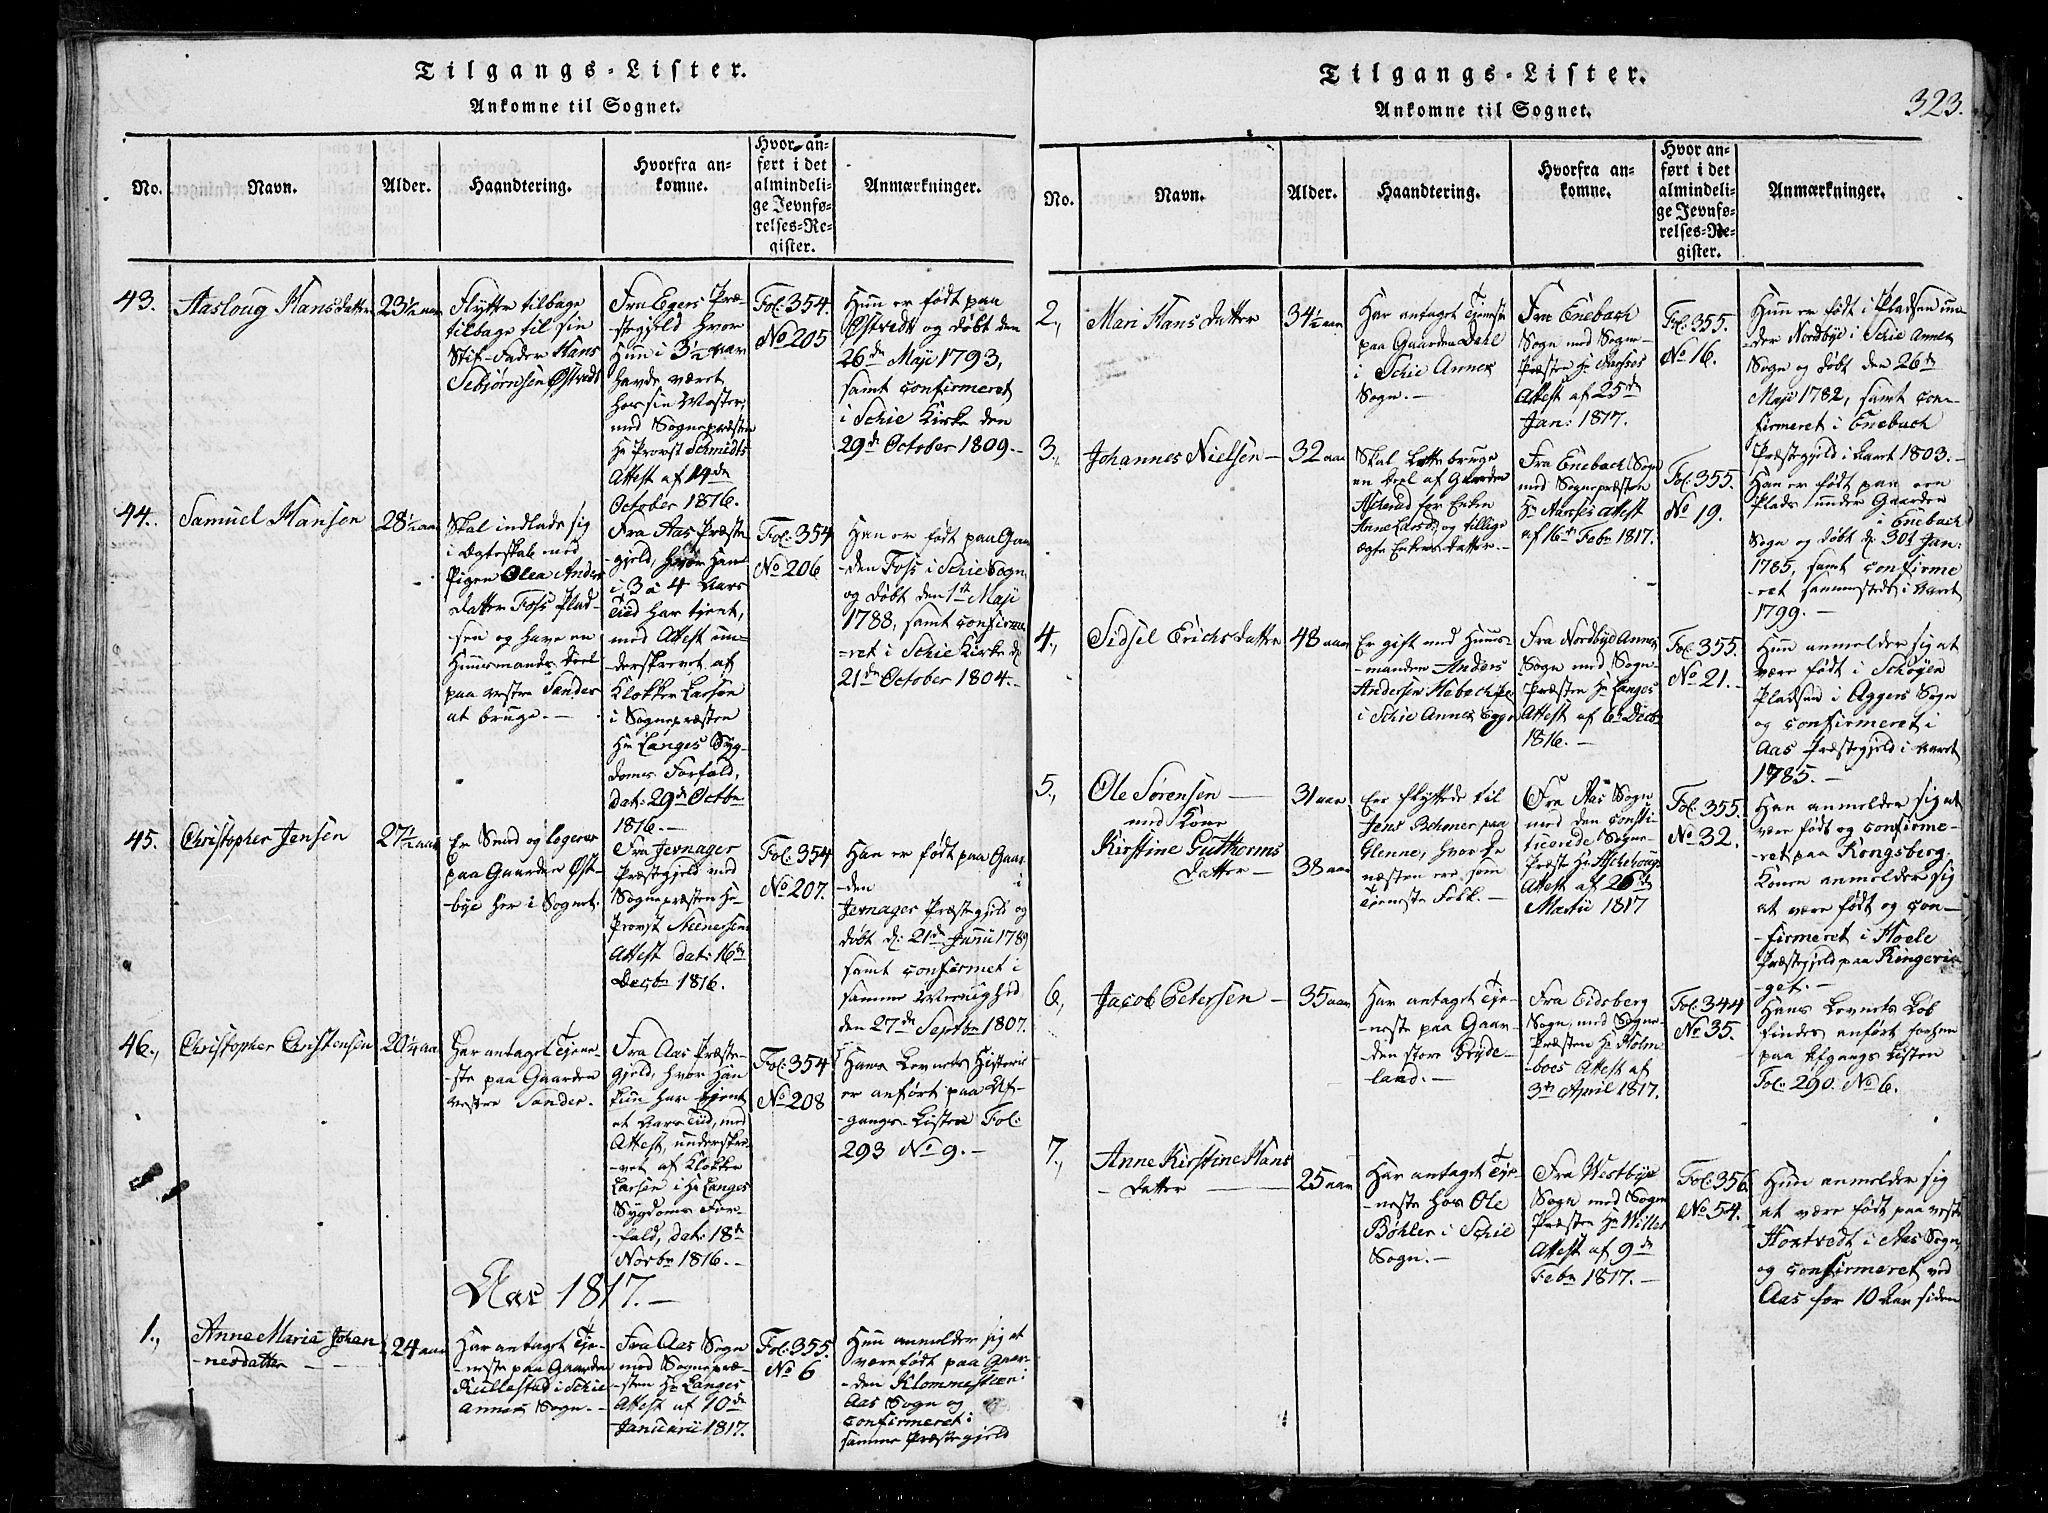 Tilgangs-Lister.
Ankomne til Sognet.
No.
Navn.
Alder.
Haandtering.
Hvorfra an-
komne.
Hvor an-
ført i det
almindeli-
ge Jevnfø-
relses-Re-
gister.
Anmærkninger.
43.
Aasloug Hansdatter
23½ aar
Flytter tilbage
tilbage til sin
Stif-Fader Hans
Sebjørnsen Østvedt
Fra Egers Præ-
stegjeld hvor
Hun i 3½ aar
havde været
hos sin Moster,
med Sognepræsten
Hr Provst Schmidts
Attest af 14de
October 1816.
Fol: 354.
No 205
Hun er født paa
Østvedt og døbt den
26de Maji 1793,
samt confirmeret
i Schie Kirke den
29de October 1809.-
44.
Samuel Hansen
28½ aar
Skal indlade sig
i Ægteskab med
Pigen Olea Anders
datter Foss Plad-
sen og have en
Huusmands Deel
paa vestre Sander
at bruge.-
Fra Aas Præste-
gjeld, hvor Han
i 3 a 4 Aars
Tiid har tjent,
med Attest un-
derskrevet af
Klokker Larsen
i Sognepræsten
Hr Langes Syg-
doms Forfald,
dat: 29de Octbr
1816.-
Fol: 354
No 206
Han er født paa Gaar
den Foss i Schie Sogn,
og døbt den 1ste Maji
1788, samt confirme
-ret i Schie Kirke d:
21de October 1804.-
45.
Christopher Jensen
27½ aar
Er Smed og logerer
paa Gaarden Øst-
bye her i Sognet.
Fra Jevnager
Præstegjeld med
Sognepræsten Hr
Provst Steenersens
Attest dat: 16de
Decbr 1816.
Fol: 354
No 207.
Han er født paa Gaar
-den i
Jevnager Præstegjeld og
døbt d: 21de Junii 1789
samt confirmet i
samme Menighed
den 27de Septbr 1807.
46.,
Christopher Christensen
20¼ aar
Har antaget Tjene-
-ste paa Gaarden
vestre Sander.
Fra Aas Præste-
gjeld, hvor Han
kun har tjent
et Aars Tiid, med
Attest, underskre-
-vet af Klokker
Larsen i Hr Langes
Sygdoms For-
fald, dat: 18de
Novbr 1816.-
Fol: 354
No 208
Hans Levnets Historie
er anført paa Af-
-gangs-Listen Fol:
293 No 9.-
Aar 1817.-
1.,
Anne Maria Johan
-nesdatter -
24 aar
Har antaget Tje-
-neste paa Gaarden
Kullestad i Schie
Annex Sogn.-
Fra Aas Sogn
med Sognepræ-
-sten Hr Langes
Attest af 10de
Januarii 1817.
Fol: 355.
No 6
Hun anmelder sig at
være født paa Gaar-
-den Klommesteen i
Aas Sogn og
confirmeret i
samme Præstegjeld
Tilgangs-Lister.
Ankomne til Sognet.
323.
No.
Navn.
Alder.
Haandtering.
Hvorfra an-
komne.
Hvor an-
ført i det
almindeli-
ge Jevnfø-
relses-Re-
gister.
Anmærkninger.
2.,
Mari Hansdatter
34½ aar
Har antaget Tjeneste
paa Gaarden Dahl
i Schie Annex
Sogn.-
Fra Enebach
Sogn med Sogne-
Præsten Hr Aasses
Attest af 25de
Jan: 1817.
Fol: 355.
No 16.
Hun er født i Pladsen un-
-der Nordbye i Schie Annex
Sogn og døbt den 26de
Maji 1782, samt con-
firmeret i Enebach
Præstegjeld i Aaret 1803.-
3.,
Johannes Nielsen -
32 aar
Skal bruge
en Deel af Gaarden
for Enken
Anne Larsd: og tillige
ægte Enkens datter.-
Fra Enebach Sogn
med Sognepræsten
Hr Aasses Attest
af 16de Febr 1817.
Fol: 355.
No 19.
Han er født paa een
Plads under Gaarden
i Enebach
Sogn og døbt d: 30t Jan:
1785, samt confirme
-ret sammestedts i Aaret
1799.-
4.,
Sidsel Erichsdatter
48 aar
Er gift med Huus-
-manden Anders
Andersen
i Schie Annex Sogn
Fra Nordbye Annex
Sogn med Sogne-
Præsten Hr Langes
Attest af 6t Decbr
1816.-
Fol: 355.
No 21.-
Hun anmelder sig at
være født i Schøyen
Pladsen i Aggers Sogn
og confirmeret i
Aas Præstegjeld i Aaret
1785.-
5.,
Ole Sørensen -
med Kone
Kirstine Gutherms
datter -
31 aar
38 aar
Ere flyttede til
Jens Behmer paa
Glenne, hvor de
næsten ere som
Tjeneste Folk.-
Fra Aas Sogn
med den consti-
tuerende Sogne-
Præst Hr Aschehougs
Attest af 26de
Martii 1817
Fol: 355.
No 32.
Han anmelder sig at
være født og confirme-
-ret paa Kongsberg.
Konen anmelder sig
at være født og con-
-firmeret i Hoele
Præstegjeld paa Ringeri-
-get.-
6.,
Jacob Petersen -
35 aar
Har antaget Tje-
neste paa Gaar-
-den store Bryde-
land.-
Fra Eidsberg
Sogn, med Sogne-
Præsten Hr Holm-
boes Attest af
3de April 1817.
Fol: 344
No 35.
Hans Levnets Løb
findes anført forhen
paa Afgangs Listen
Fol: 290. No 6.
7.,
Anne Kirstine Hans
-datter -
25 aar
Har antaget Tje-
-neste hos Ole
Bøhler i Schie
Sogn.-
Fra Westbye
Sogn med Sogne
Præsten Hr
Attest af 9de
Febr 1817.-
Fol: 356.
No 54.
Hun anmelder sig
at være født paa vestre
Hortvedt i Aas Sogn,
og confirmeret ved
Aas for 10 Aar siden